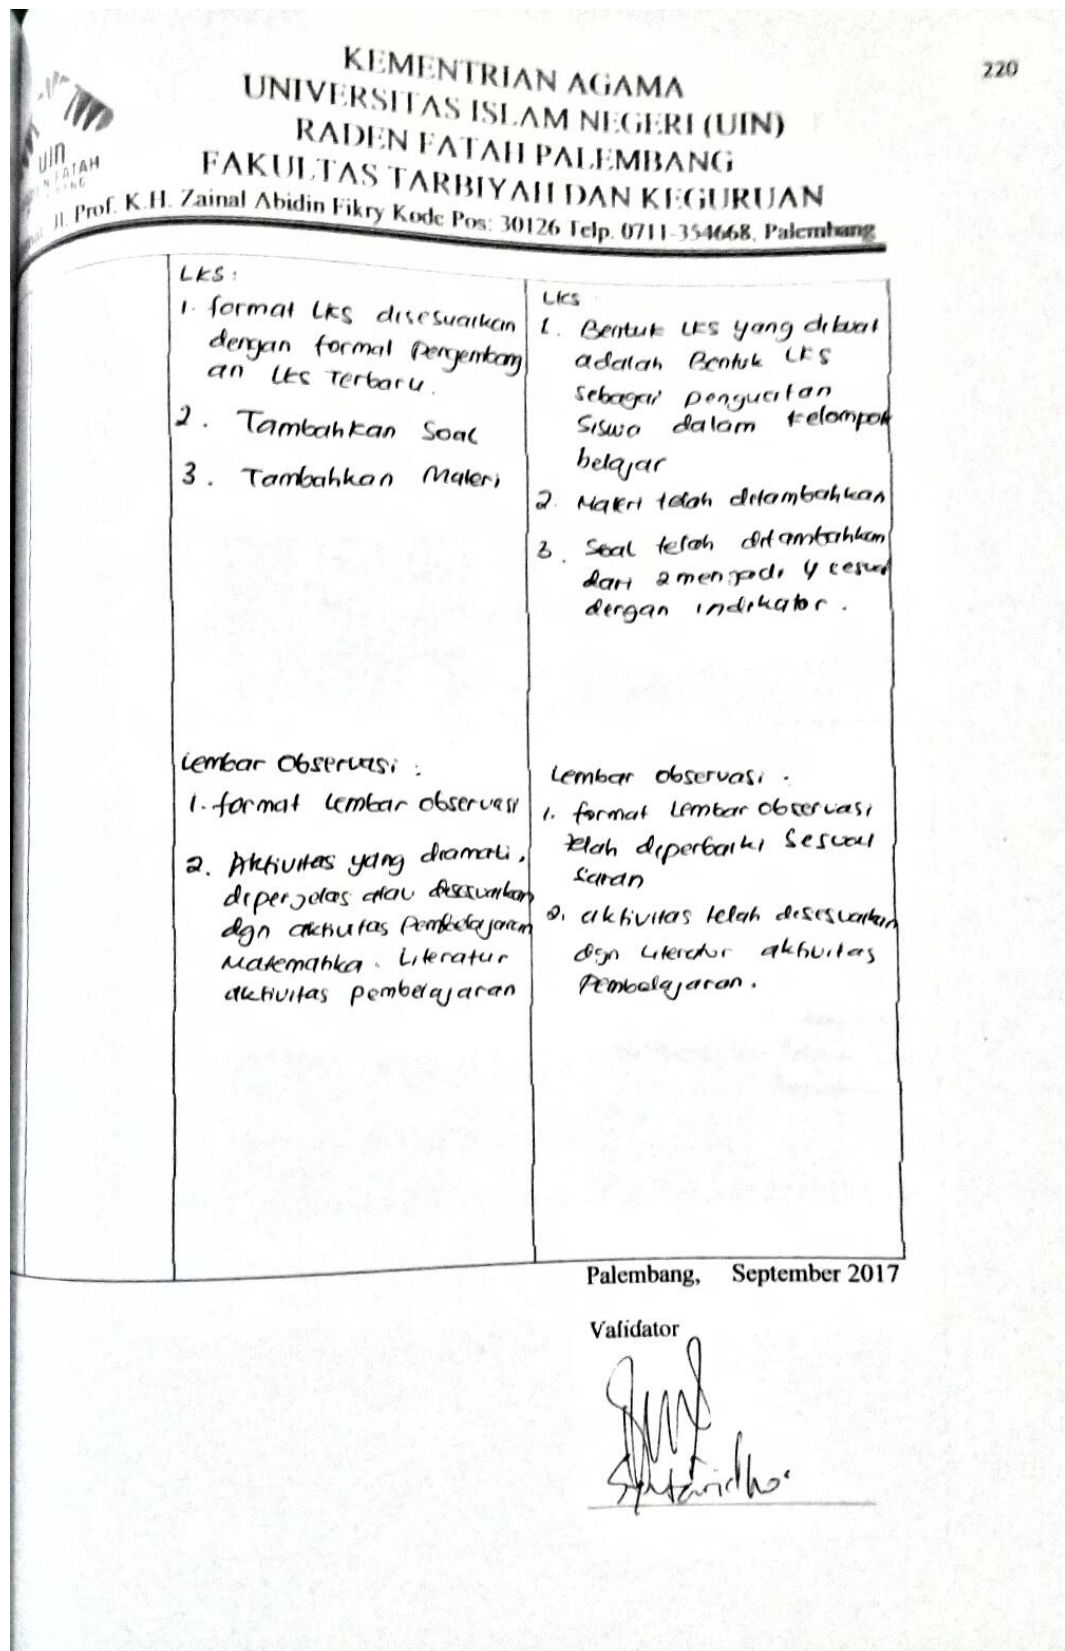 220
KEMENTRIAN AGAMA
UNIVERSITAS ISLAM NEGERI (UIN)
RADEN FATAH PALEMBANG
FAKULTAS TARBIYAH DAN KEGURUAN
Jl. Prof. K.H. Zainal Abidin Fikry Kode Pos: 30126 Telp. 0711-354668, Palembang
UIN
LKS :
1. format LKS disesuaikan
dengan format pengembang
an LKS Terbaru.
2. Tambahkan Soal
3. Tambahkan Materi
LKS
1. Bentuk LKS yang dibuat
adalah Bentuk LKS
sebagai penguatan
Siswa dalam kelompok
belajar
2. Materi telah ditambahkan
3. Soal telah ditambahkan
dari 2 menjadi 4 sesuai
dengan indikator.
Lembar Observasi :
1. format Lembar observasi
2. Aktivitas yang diamati,
diperjelas atau disesuaikan
dgn aktivitas Pembelajaran
Matematika. Literatur
aktivitas pembelajaran
Lembar observasi.
1. format Lembar observasi
telah diperbaiki Sesuai
Saran
2. aktivitas telah disesuaikan
dgn Literatur aktivitas
Pembelajaran.
Palembang, September 2017
Validator